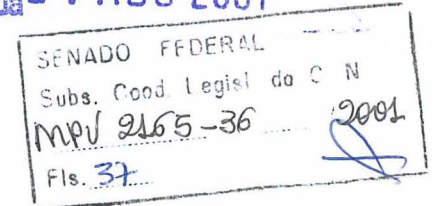 AGO 2001
SENADO FEDERAL
Subs. Coord. Legisl. do C N
MPV 2165-36 2001
Fls. 37